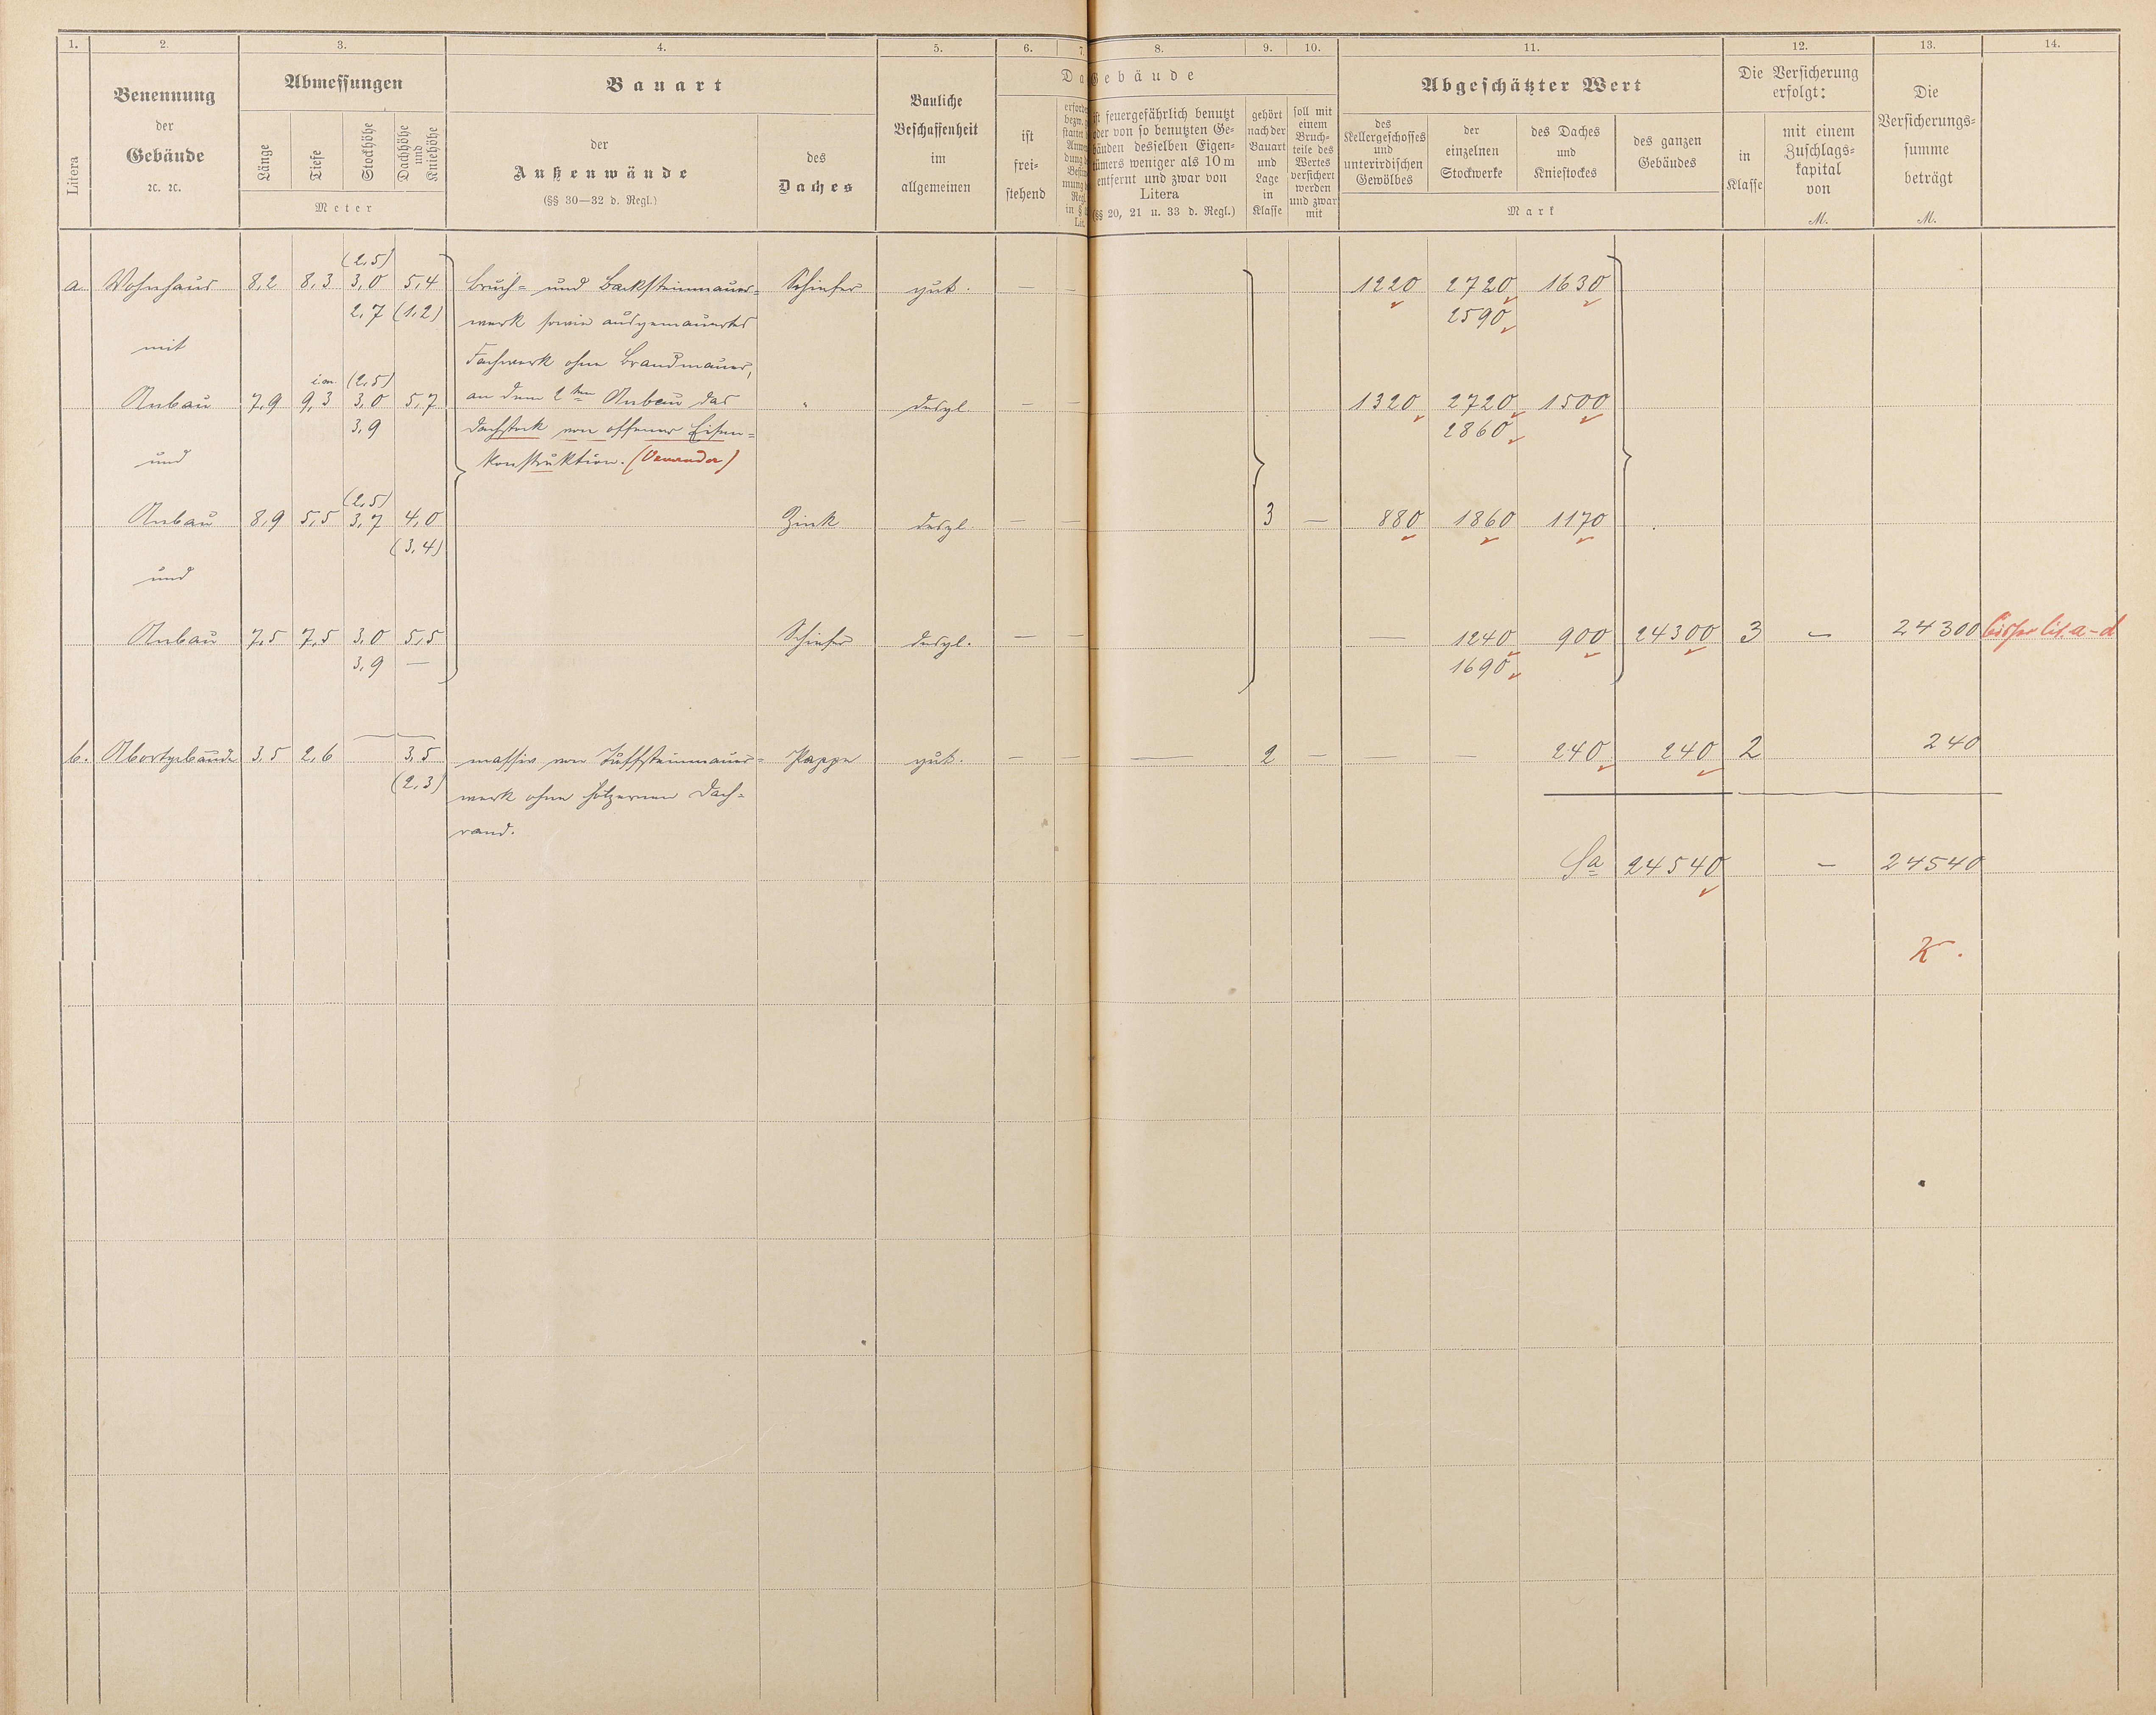 1. 2. 3. 4. 5. 6. 7. 8. 9. 10. 11. 12. 13. 14.
Litera
Benennung
der
Gebäude
ꝛc. ꝛc.
Abmessungen
Länge
Tiefe
Stockhöhe
Dachhöhe
und
Kniehöhe
Meter
Bauart
der
Außenwände
(§§ 30—32 d. Regl.)
des
Daches
Bauliche
Beschaffenheit
im
allgemeinen
Gebäude
ist
frei-
stehend
ist feuergefährlich benutzt
oder von so benutzten Ge-
bäuden desselben Eigen-
tümers weniger als 10 m
entfernt und zwar von
Litera
(§§ 20, 21 u. 33 d. Regl.)
gehört
nach der
Bauart
und
Lage
in
Klasse
soll mit
einem
Bruch-
teile des
Wertes
versichert
werden
und zwar
mit
Abgeschätzter Wert
des
Kellergeschosses
und
unterirdischen
Gewölbes
der
einzelnen
Stockwerke
des Daches
und
Kniestockes
des ganzen
Gebäudes
Mark
Die Versicherung
erfolgt:
in
Klasse
mit einem
Zuschlags-
kapital
von
M.
Die
Versicherungs-
summe
beträgt
M.
(2,5)
a. Wohnhaus 8,2 8,3 3,0 5,4 Bruch- und Backsteinmauer- Schiefer gut. — — 1220 2720 1630
2,7 (1,2) werk sowie ausgemauertes 2590
mit Fachwerk ohne Brandmauer,
i.m. (2,5)
Anbau 7,9 9,3 3,0 5,7 an dem 2ten Anbau das " desgl. — — 1320 2720 1500
3,9 Dachstock von offener Eisen- 2860
und konstruktion. (Veranda)
(2,5)
Anbau 8,9 5,5 3,7 4,0 Zink desgl. — — 3 — 880 1860 1170
(3,4)
und
Anbau 7,5 7,5 3,0 5,5 Schiefer desgl. — — — 1240 900 24300 3 — 24300 bisher lit. a-d
3,9 — 1690
b. Abortgebäude 3,5 2,6 3,5 massiv von Tuffsteinmauer- Pappe gut. — — — 2 — — — 240 240 2 240
(2,3) werk ohne hölzernen Dach-
rand.
Sa 24540 — 24540
K.